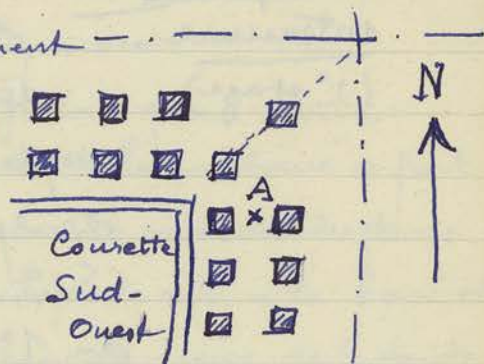 N
A
Courette
Sud-
Ouest